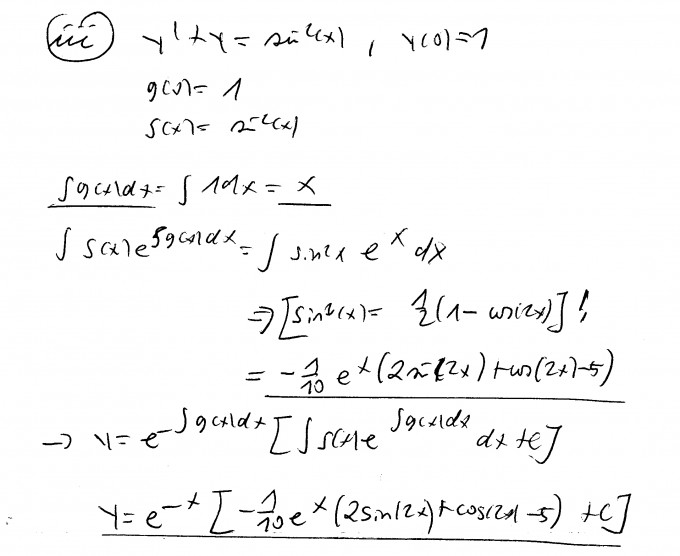 iii y' + y = sin²(x) , y(0)=1
g(x)= 1
s(x)= sin²(x)
∫g(x)dx = ∫ 1dx = x
∫ s(x)e^∫g(x)dx = ∫ sin²x e^x dx
⇒ [sin²(x)= 1/2(1-cos(2x))] !
= -1/10 e^x(2sin(2x)+cos(2x)-5)
→ y= e^-∫g(x)dx [∫ s(x)e^∫g(x)dx dx +c]
y= e^-x [-1/10 e^x(2sin(2x)+cos(2x)-5) +c]